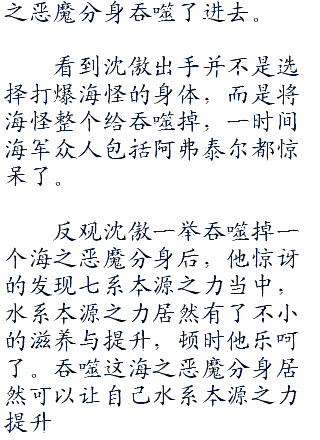 之恶魔分身吞噬了进去。
看到沈傲出手并不是选
择打爆海怪的身体，而是将
海怪整个给吞噬掉，一时间
海军众人包括阿弗泰尔都惊
呆了。
反观沈傲一举吞噬掉一
个海之恶魔分身后，他惊讶
的发现七系本源之力当中，
水系本源之力居然有了不小
的滋养与提升，顿时他乐呵
了。吞噬这海之恶魔分身居
然可以让自己水系本源之力
提升